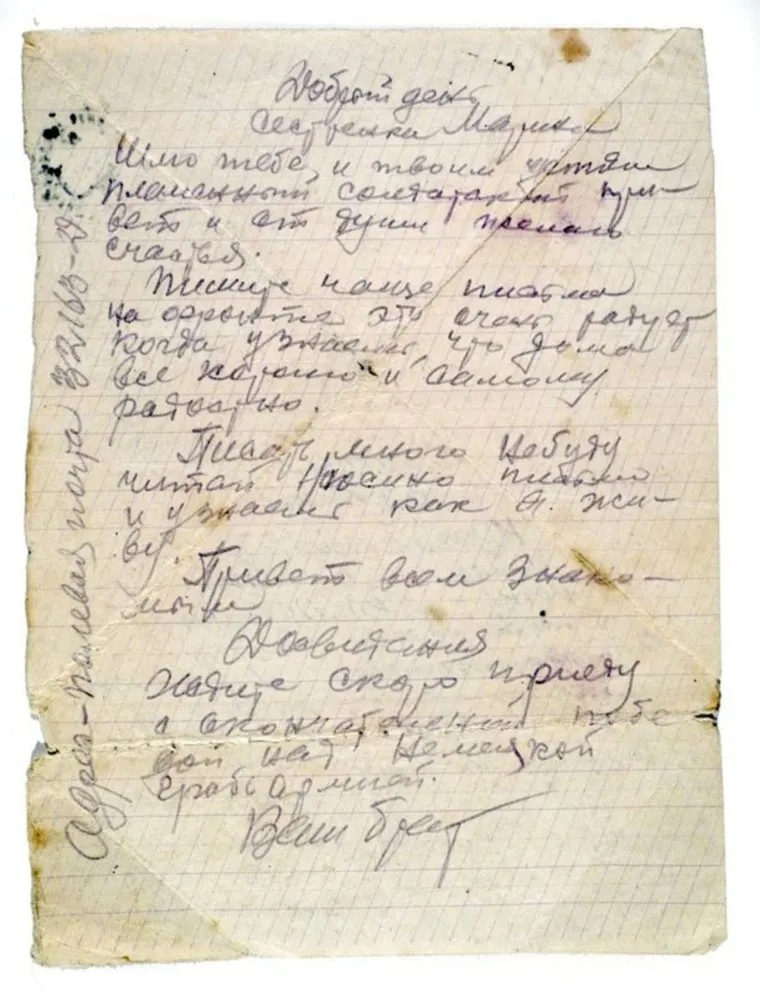 Добрый день
сестренка Марина
Шлю тебе, и твоим детям
пламенный солдатский при-
вет и от души желаю
счастья.
Пишите чаще письма
на фронте это очень радует
когда узнаешь, что дома
все хорошо и самому
радостно.
Писать много небуду
читай Нюсино письмо
и узнаеш как я жи-
ву.
Привет всем знако-
мым
Досвидания
Ждите скоро приеду
с окончательной побе
дой над Немецкой
грабь Армией.
Ваш брат
Адрес-Полевая почта 32163-Д